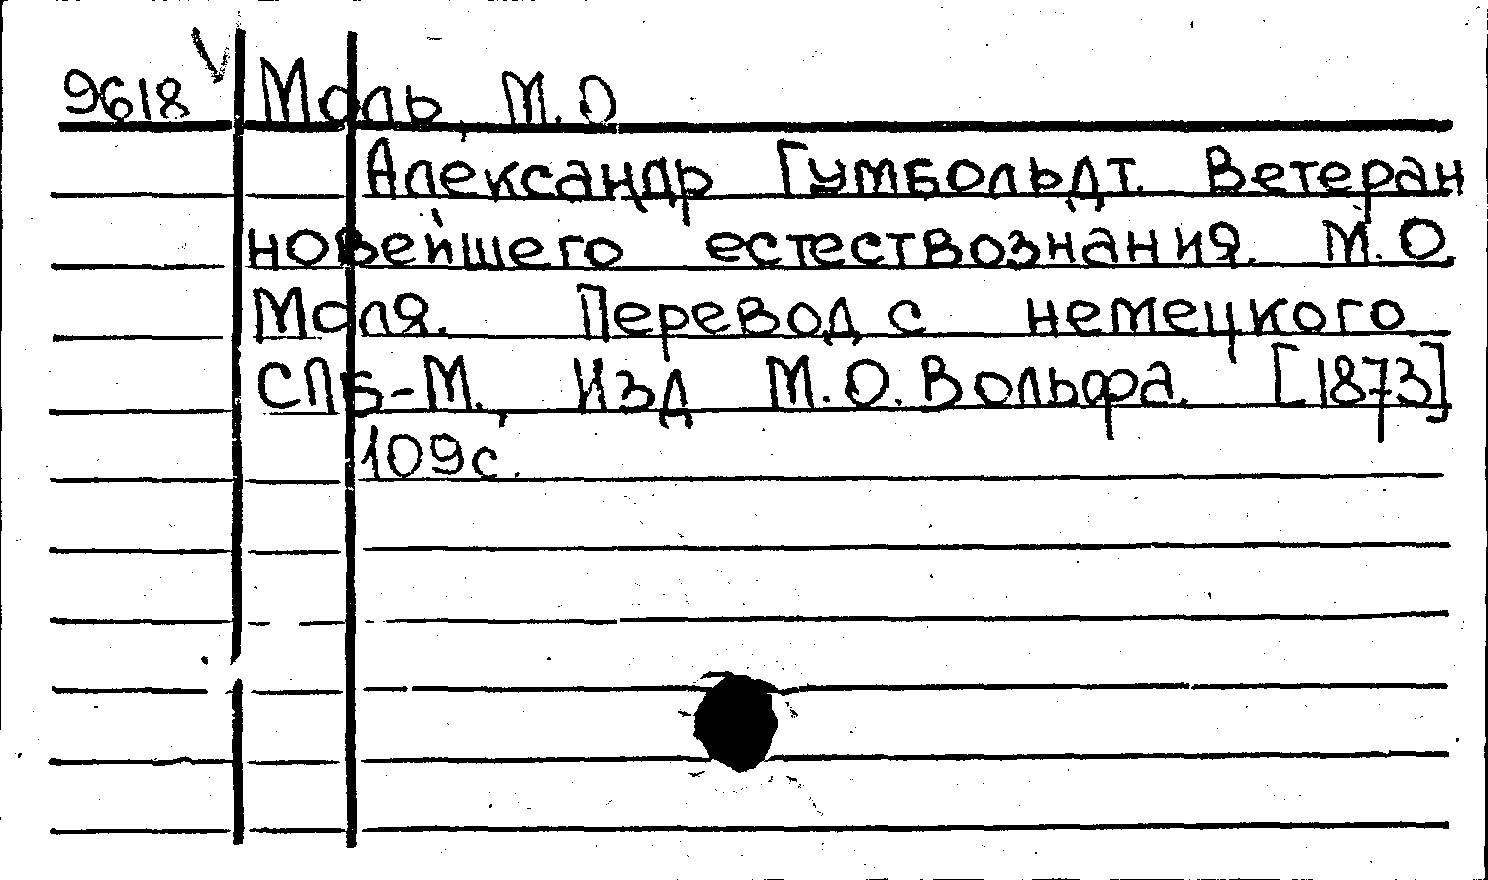 9618 Моль, М.О
Александр Гумбольдт. Ветеран
новейшего естествознания. М.О.
Моля. Перевод с немецкого
СПБ-М., Изд М.О.Вольфа. [1873]
109с.